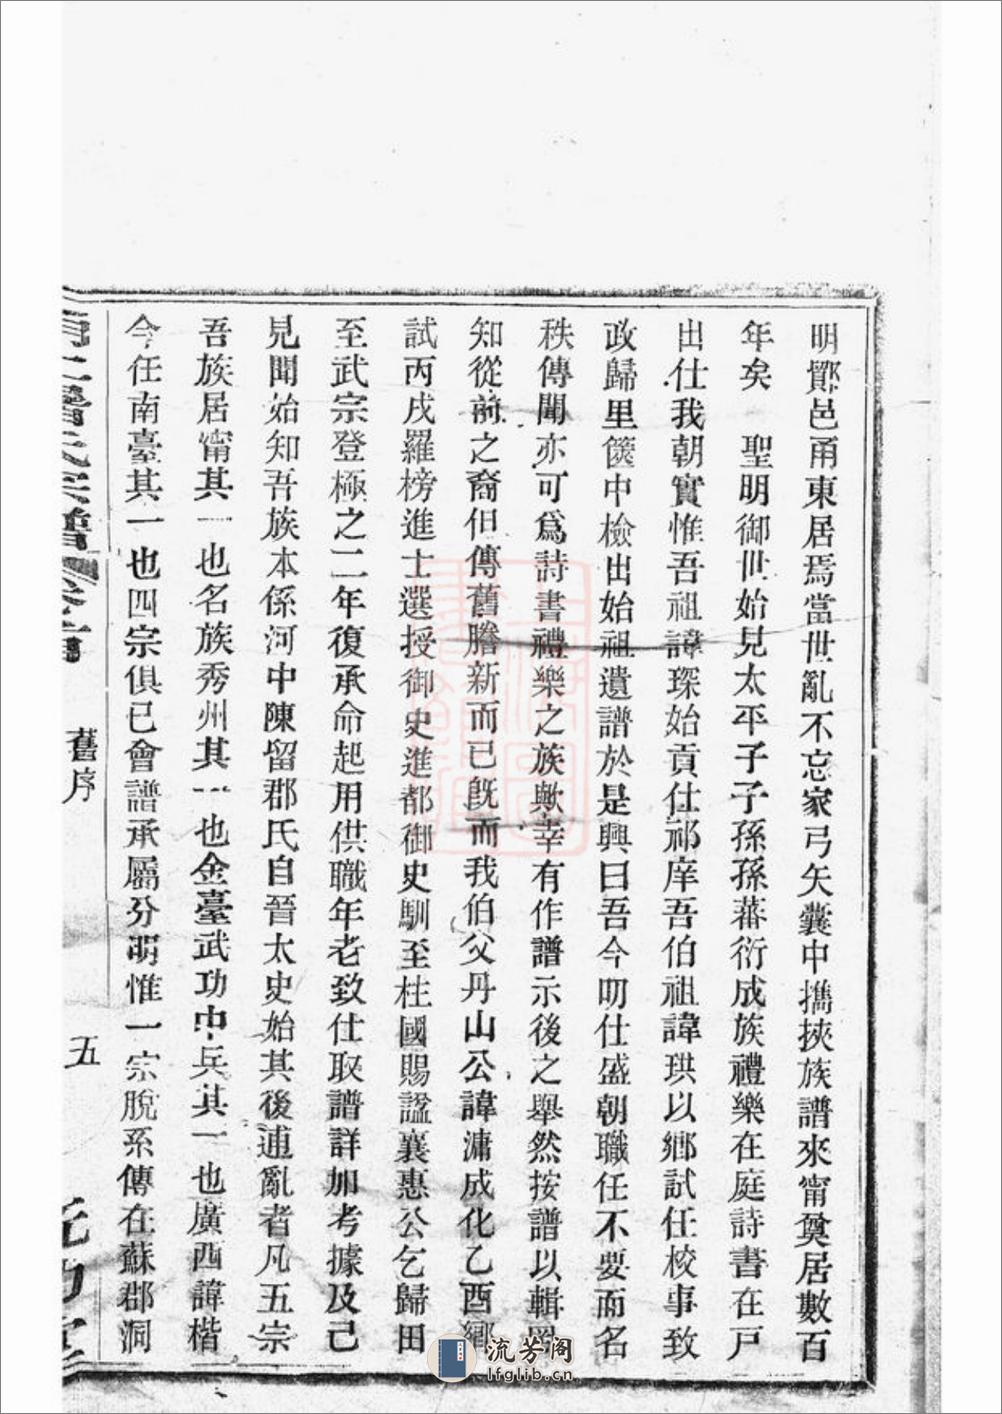 明鄞邑甬東居焉當世亂不忘家弓矢囊中攜挾族譜來甯奠居數百
年矣　聖明御世始見太平子子孫孫蕃衍成族禮樂在庭詩書在戸
出仕我朝實惟吾祖諱琛始貢仕祁庠吾伯祖諱珙以鄉試任校事致
政歸里篋中檢出始祖遺譜於是興曰吾今明仕盛朝職任不要而名
秩傳聞亦可爲詩書禮樂之族歟幸有作譜示後之舉然按譜以輯罔
知從前之裔但傳舊謄新而已旣而我伯父丹山公諱滽成化乙酉鄉
試丙戌羅榜進士選授御史進都御史馴至柱國賜謚襄惠公乞歸田
至武宗登極之二年復承命起用供職年老致仕取譜詳加考據及己
見聞始知吾族本係河中陳留郡氏自晉太史始其後逋亂者凡五宗
吾族居甯其一也名族秀州其一也金臺武功中兵其一也廣西諱楷
今任南臺其一也四宗俱已會譜承屬分明惟一宗脫系傳在蘇郡洞
氏宗譜 卷首
舊序
五
流芳阁
lfglib.cn